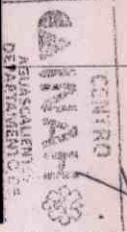 CENTRO
INAH
AGUASCALIENTES
DEPARTAMENTO DE